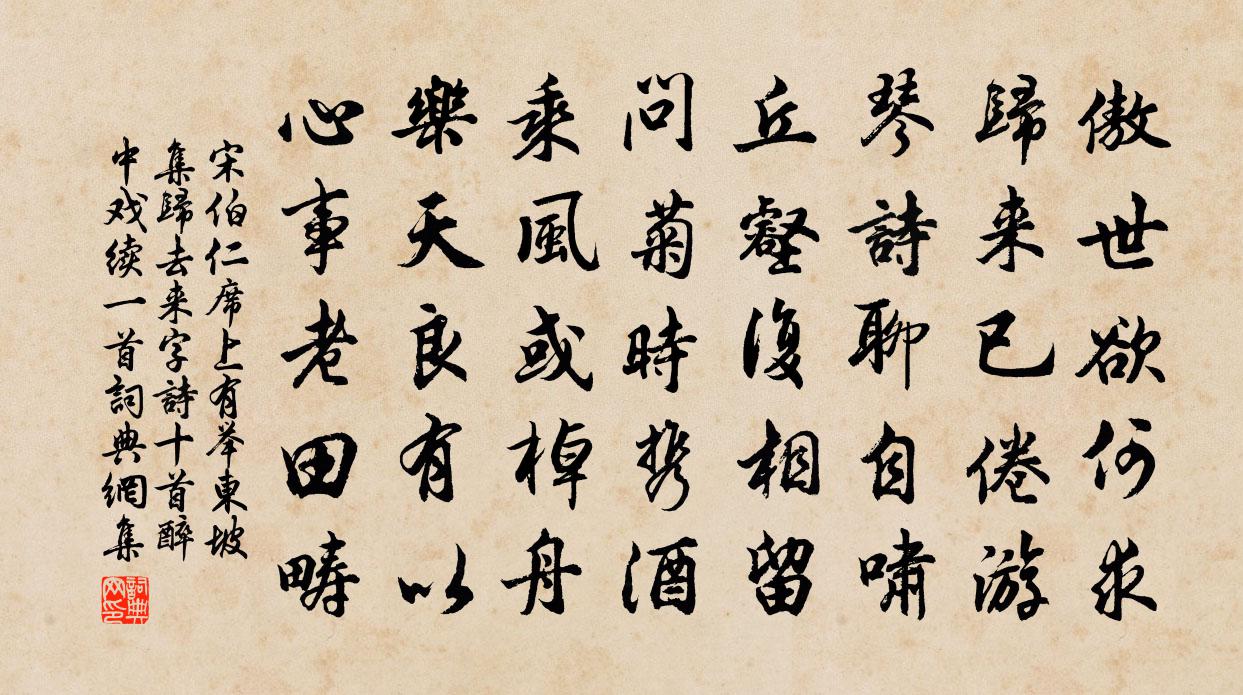 傲世欲何求
歸来已倦游
琴詩聊自嘯
丘壑復相留
問菊時携酒
乘風或棹舟
樂天良有以
心事老田疇
宋伯仁席上有举東坡
集歸去来字詩十首醉
中戏续一首詞典網集
詞典
网印